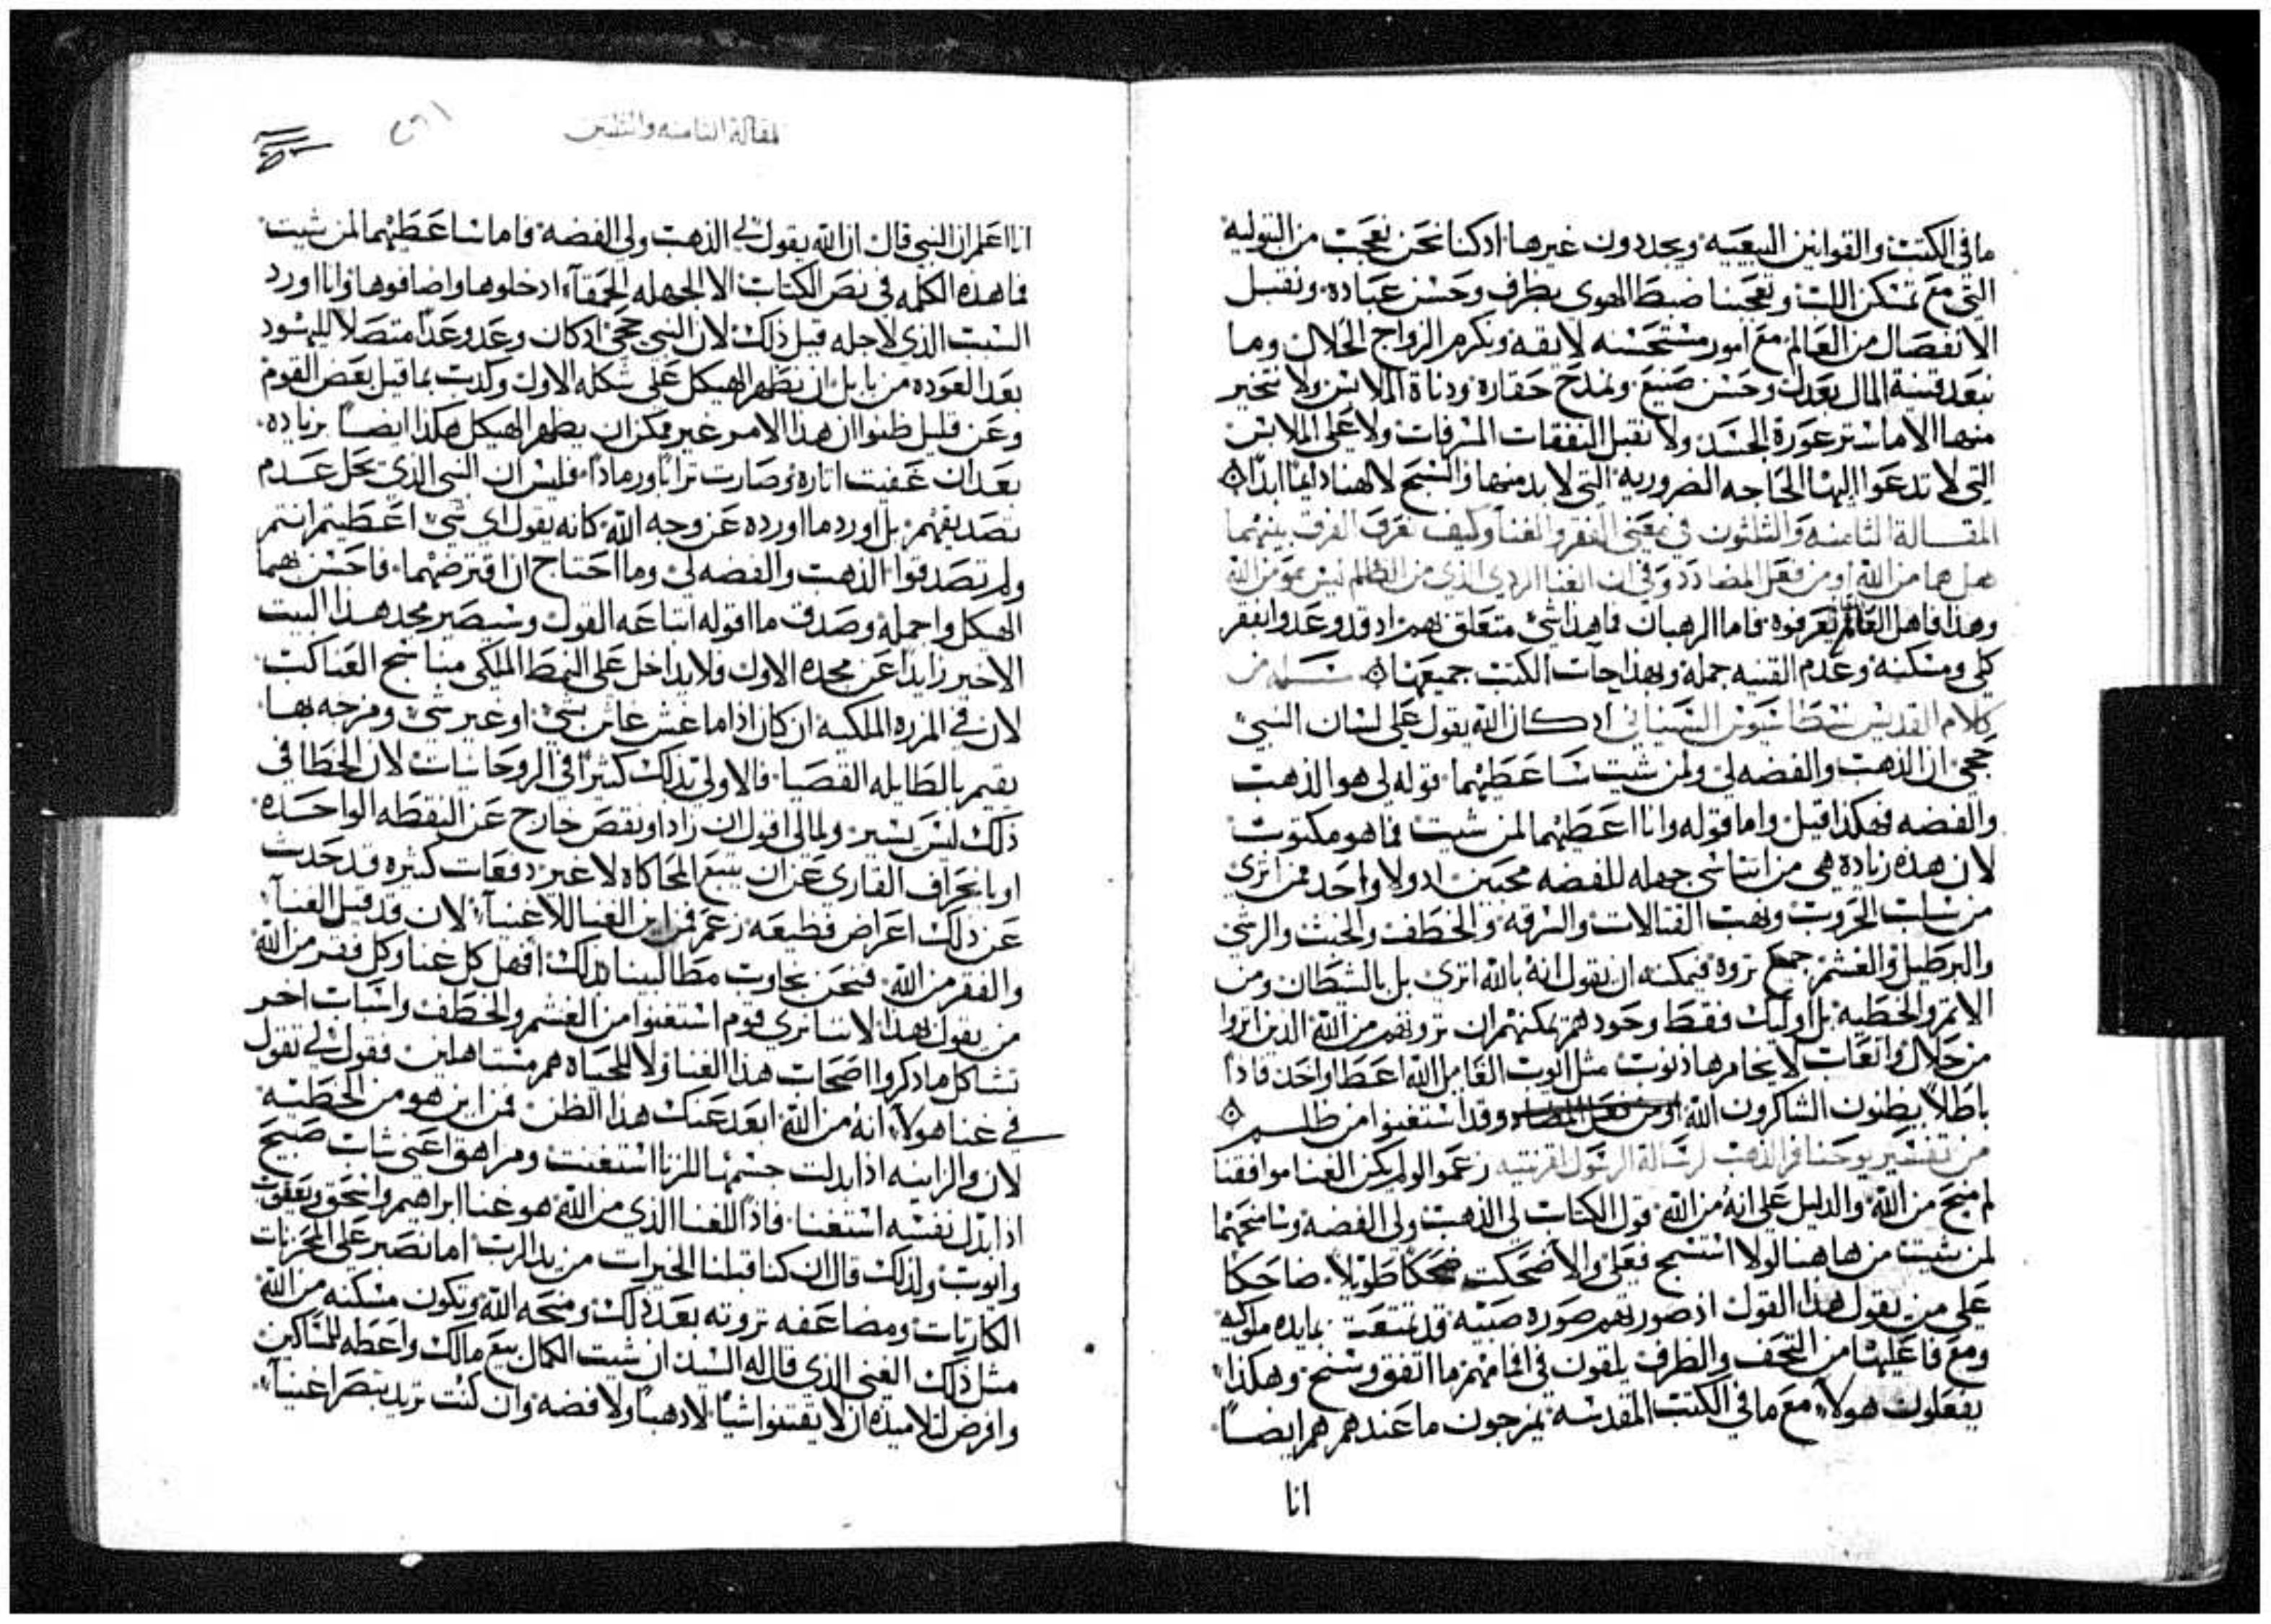 ما في الكتب والقوانين البيعيه ويحددون غيرها اذ كنا نحن نعجب من البتوليه
التي مع تمسكن اللب وتعجبنا ضبط الهوى بظرف وحسن عباده ونقبل
الانفصال من العالم مع امور مستحسنه لايقه ونكرم الزواج الحلال وما
نبعد قنية المال بعدل وحسن صنيع ونمدح حقارة ودناة الملابس ولا نتخير
منها الا ما ستر عورة الجسد ولا نقبل النفقات المسرفات ولا على الملابس
التي لا تدعوا اليها الحاجه الضروريه التي لا بد منها والسبح لالهنا دايما ابدا
المقالة الثامنه والثلثون في معنى الفقر والغنا وكيف نعرف الفرق بينهما
هل هما من الله او من فعل المضادد وفي ان الغنا الردي الذي من الظلم ليس هو من الله
وهذا فاهل العالم يعرفوه فاما الرهبان فما هذا شي متعلق بهم اذ قد وعدوا بفقر
كلي ومسكنه وعدم القنيه جملة وبهذا جات الكتب جميعها
كلام القديس نسطاسيوس السينايي اذ كان الله يقول على لسان النبي
حجي ان الذهب والفضه لي ولمن شيت ساعطيهما قوله لي هو الذهب
والفضه فهكذا قيل واما قوله وانا اعطيهما لمن شيت فما هو مكتوب
لان هذه زيادة هي من اناس جهله للفضه محبين اذ ولا واحد ممن اثرى
من سلب الحروب ونهب القتالات والسرقه والخطف والخبث والرشي
والبرطيل والغشم جمع ثروة فيمكنه ان يقول انه بالله اثرى بل بالشيطان ومن
الاثم والخطيه بل اوليك فقط وحدهم يمكنهم ان ثروتهم من الله الذين اثروا
من حلال واتعاب لا يخامرها ذنوب مثل ايوب القايل الله اعطا واخذ فاذا
باطلا يظنون الشاكرون الله وقد استغنوا من ظلم
من تفسير يوحنا فم الذهب لرسالة الرسول لقرنتيه زعموا لو لم يكن الغنا موافقنا
لم منح من الله والدليل على انه من الله قول الكتاب لي الذهب ولي الفضه وسامنحهما
لمن شيت من هاهنا لولا استسمج فعلي والا ضحكت ضحكا طويلا ضاحكا
على من يقول هذا القول اذ صورتهم صورة صبيه قد تمتعت بمايده ملوكيه
ومع فاعليها من التحف والظرف يلقون في افامهم ما اتفق وسنح وهكذا
يفعلون هولاء مع ما في الكتب المقدسه يمزجون ما عندهم هم ايضا
انا
لمقالة الثامنه والثلثين
انا اعلم ان النبي قال ان الله يقول لي الذهب ولي الفضه فاما ساعطيهما لمن شيت
فما هذه الكلمه في نص الكتاب الا الجهله الحمقاء ادخلوها واضافوها وانا اورد
السبب الذي لاجله قيل ذلك لان النبي حجي اذ كان وعد وعدا متصلا لليهود
بعد العوده من بابل ان يظهر الهيكل على شكله الاول وكذب بما قيل بعض القوم
وعن قليل ظنوا ان هذا الامر غير ممكن ان يظهر الهيكل هكذا ايضا بزياده
بعد ان عفيت اثاره وصارت ترابا ورمادا فليس ان النبي الذي يحل عدم
تصديقهم بل اورد ما اورده عن وجه الله كانه يقول اي شي اعطيتم انتم
ولم تصدقوا الذهب والفضه لي وما احتاج ان اقترضهما فاحسن بهما
الهيكل واجمله وصدق ما اقوله اتباعه القول وسيصير مجد هذا البيت
الاخير زايدا عن مجده الاول فلا يداخل على النمط الملكي مناسج العناكب
لان في المزره الملكيه ان كان اذا ما غش غاش بشي او غير شي ومزجه بها
يقيم بالطايله القصيا فالاولى بذلك كثيرا في الروحانيات لان الخطا في
ذلك ليس يسير ولمالي اقول ان زاد او نقص خارج عن النقطه الواحده
او بانحراف القاري عن ان يتبع المحاكاه لا غير دفعات كثيره قد حدث
عن ذلك اعراض فظيعه زعم فمن اين الغنا للاغنياء لان قد قيل الغناء
والفقر من الله فنحن نجاوب مطالبينا بذلك افهل كل غنا وكل فقر من الله
من يقول بهذا لاننا نرى قوم استغنوا من الغشم والخطف واسباب اخر
تشاكل ما ذكروا اصحاب هذا الغنا ولا للحياه هم مستاهلين فقول لي تقول
في غنا هولاء انه من الله ابعد عنك هذا الظن فمن اين هو من الخطيه
لان والزانيه اذا بدلت جسمها للزنا استغنت ومراهق اعني شاب صبيح
اذا بذل نفسه استغنا فاذا للغنا الذي من الله هو غنا ابراهيم واسحق ويعقوب
وايوب ولذلك قال ان كنا قبلنا الخيرات من يد الرب اما نصبر على المحزنات
الكاربات ومضاعفه ثروته بعد ذلك ومنحه الله وتكون مسكنه من الله
مثل ذلك الغني الذي قال له السيد ان شيت الكمال بيع مالك واعطه للمساكين
وافرض لتلاميذه ان لا يقتنوا شيا لا ذهبا ولا فضه وان كنت تريد تبصر اغنياء